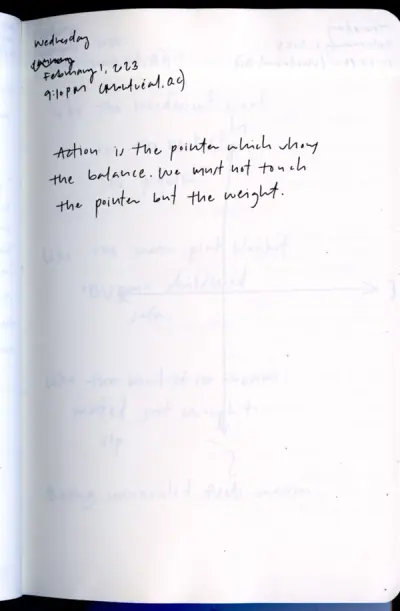 Wednesday
February 1, 2023
9:10 PM (Montréal, QC)
Action is the pointer which shows
the balance. We must not touch
the pointer but the weight.